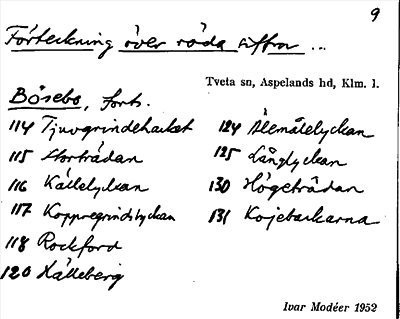 9
Förteckning över röda siffror ...
Tveta sn, Aspelands hd, Klm. l.
Bösebo, forts.
114 Tjuvgrindehacket
115 Stortrådan
116 Källelyckan
117 Koppregrindslyckan
118 Rockford
120 Hälleberg
124 Älemålelyckan
125 Långlyckan
130 Högeträdan
131 Kojebackarna
Ivar Modéer 1952